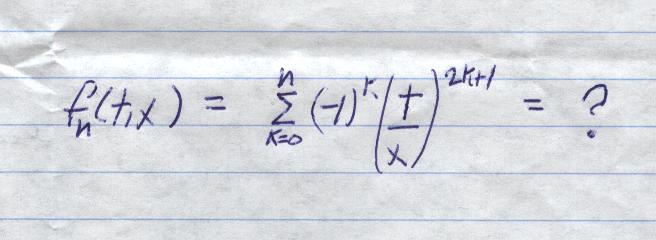 fₙ(t,x) = ∑ₖ₌₀ⁿ (-1)ᵏ (t/x)²ᵏ⁺¹ = ?